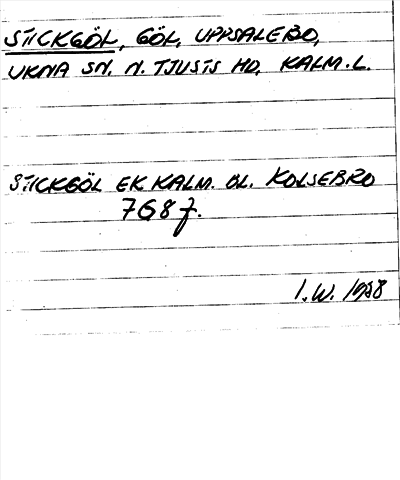 STICKGÖL, GÖL, UPPSALEBO,
UKNA SN. N. TJUSTS HD, KALM. L.
STICKGÖL EK KALM. BL. KOLSEBRO
7G8f.
I.W. 1988